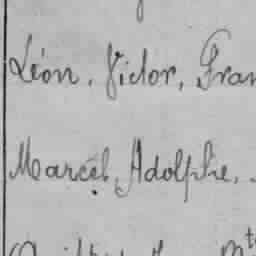 Léon, Victor, Fran
Marcel, Adolphe,